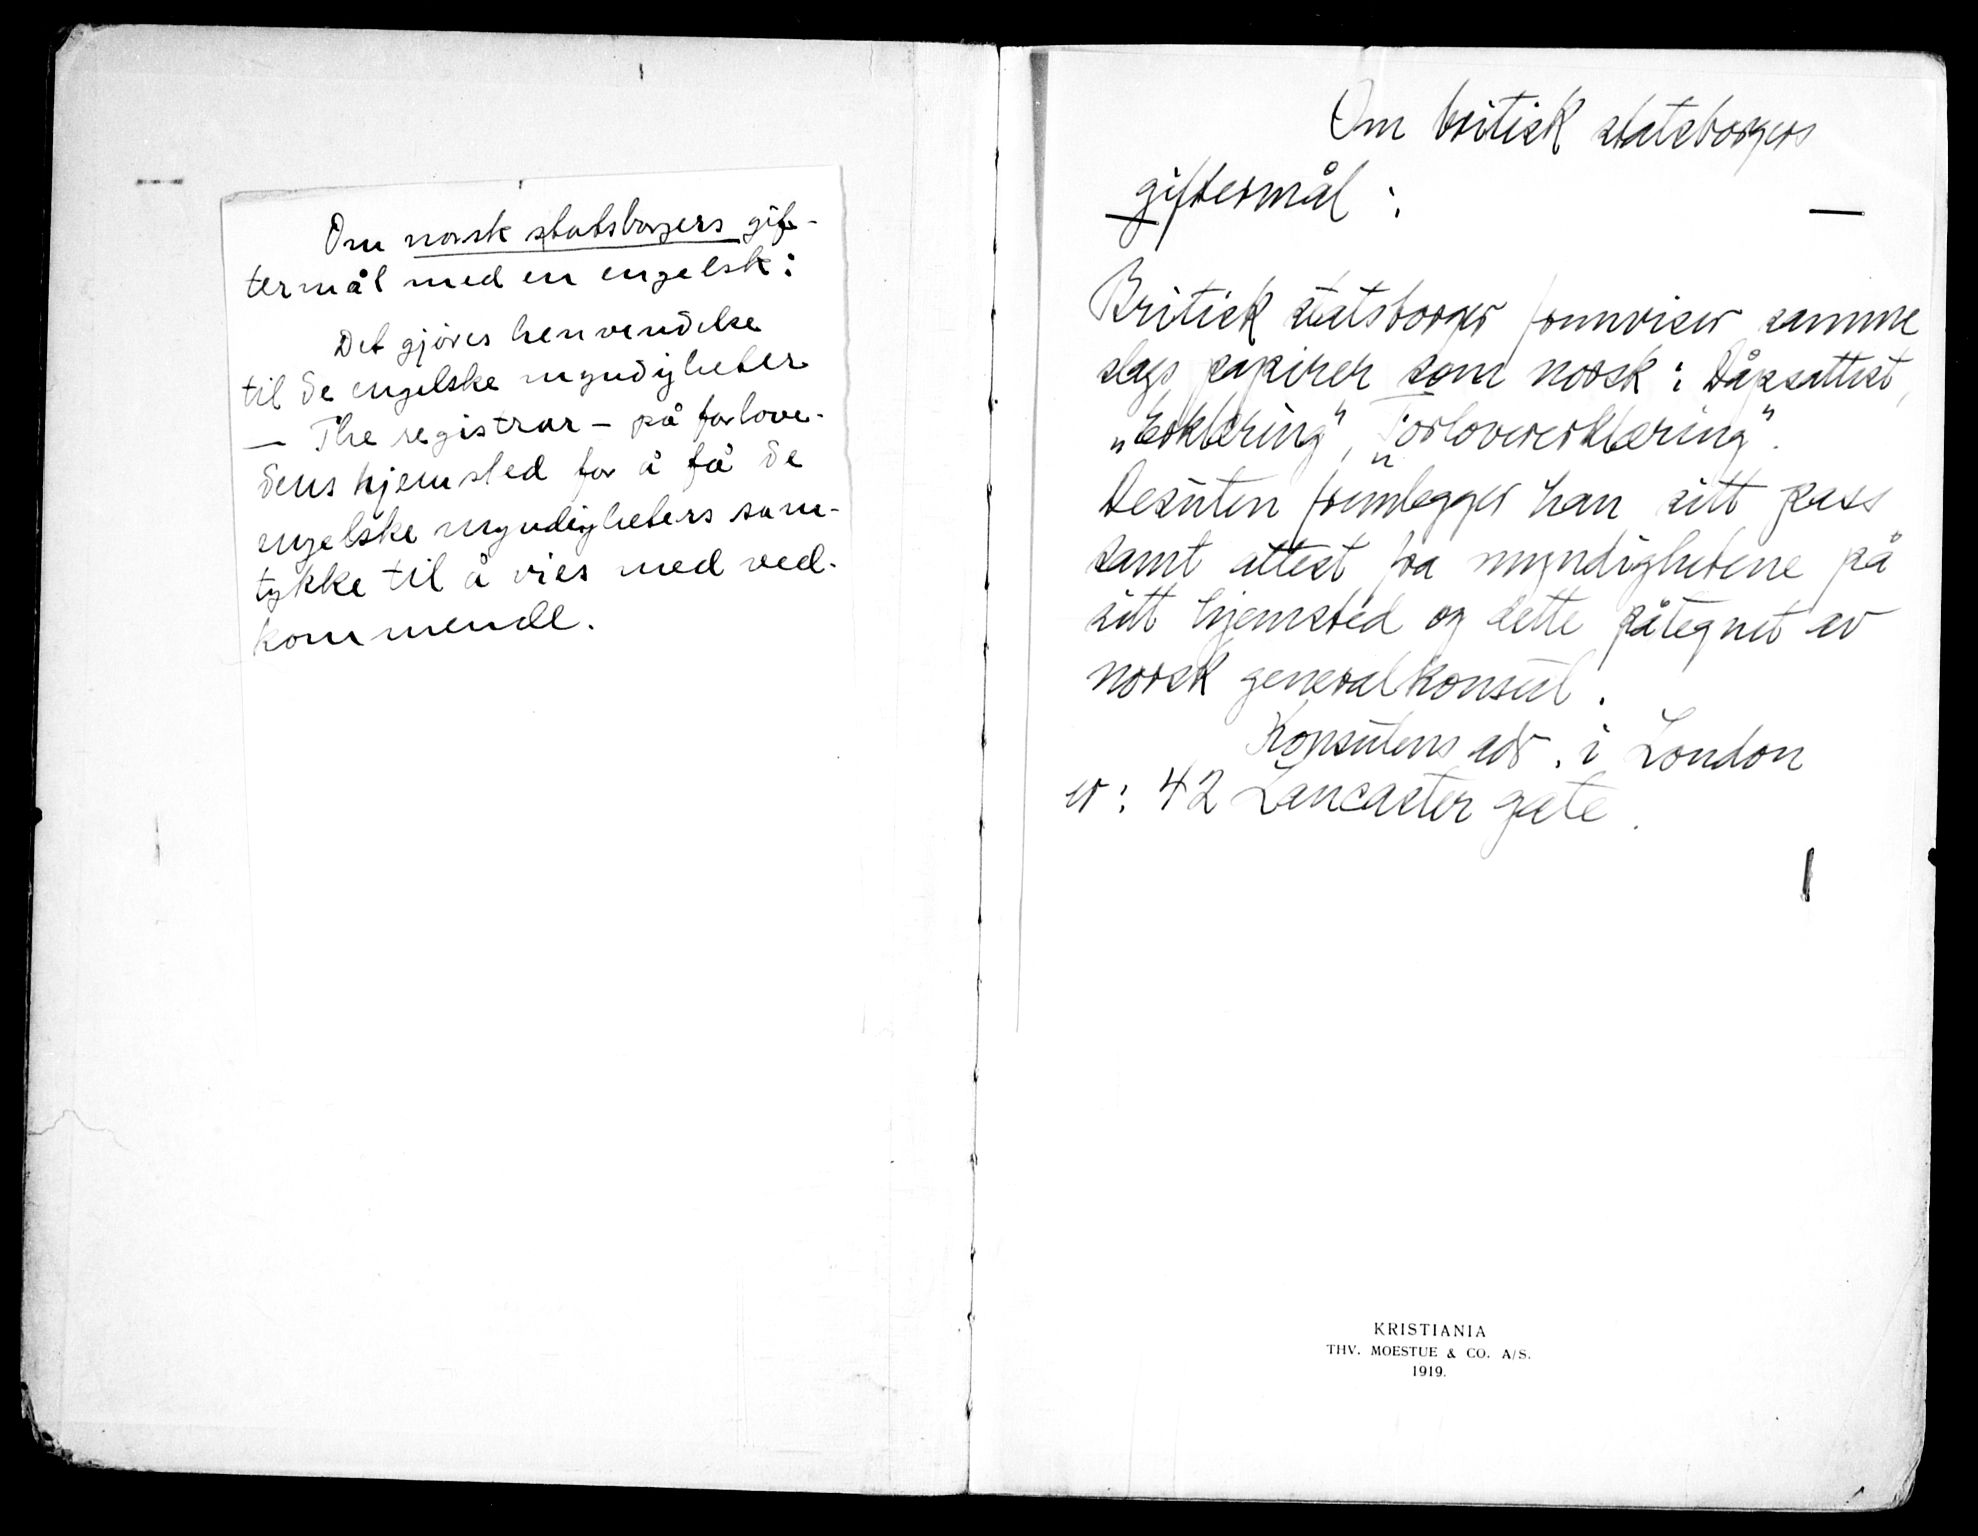 Om norsk statsborgers gif-
termål med en engelsk:
Det gjöres henvendelse
til de engelske myndigheter
— The registrar – på forlove-
dens hjemsted for å få de
engelske myndigheters sam-
tykke til å vies med ved-
kommende.
Om britisk statsborgers
giftermål :
Britisk statsborger fremviser samme
slags papirer som norsk : Dåpsattest,
„Erklæring", „Forlovererklæring".
Desuten fremlegger han sitt pass
samt attest fra myndighetene på
sitt hjemsted og dette påtegnet av
norsk generalkonsul.
Konsulens adr. i London
er : 42 Lancaster gate.
KRISTIANIA
THV. MOESTUE & CO. A/S.
1919.